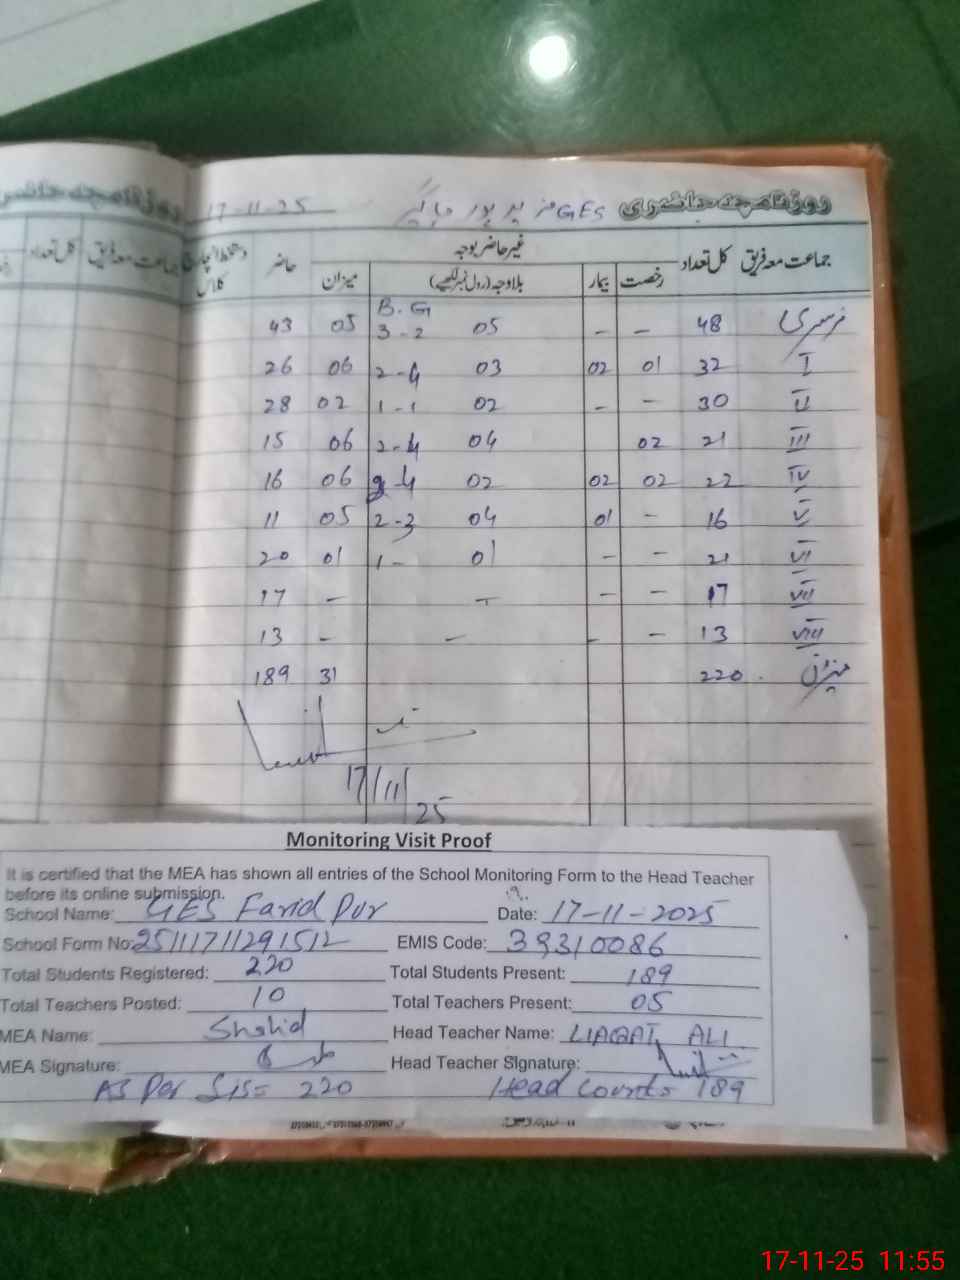 روزنامچہ حاضری GES فرید پور جاگیر 17-11-25
جماعت معہ فریق کل تعداد غیر حاضر بوجہ حاضر دستخط انچارج کلاس
رخصت بیمار بلاوجہ (رول نمبر لکھیے) میزان
B. G
نرسری 48 – – 05 3-2 05 43
I 32 01 02 03 2-4 06 26
II 30 – – 02 1-1 02 28
III 21 02 04 2-4 06 15
IV 22 02 02 02 -4 06 16
V 16 – 01 04 2-3 05 11
VI 21 – – 01 1- 01 20
VII 17 – – – – 17
VIII 13 – – – – 13
میزان 220 31 189
17/11/25
Monitoring Visit Proof
It is certified that the MEA has shown all entries of the School Monitoring Form to the Head Teacher
before its online submission.
School Name: GES Farid Pur Date: 17-11-2025
School Form No: 25111711291512 EMIS Code: 39310086
Total Students Registered: 220 Total Students Present: 189
Total Teachers Posted: 10 Total Teachers Present: 05
MEA Name: Shahid Head Teacher Name: LIAQAT ALI
MEA Signature: Head Teacher Signature:
As Per SIS= 220 Head Count= 189
17-11-25 11:55